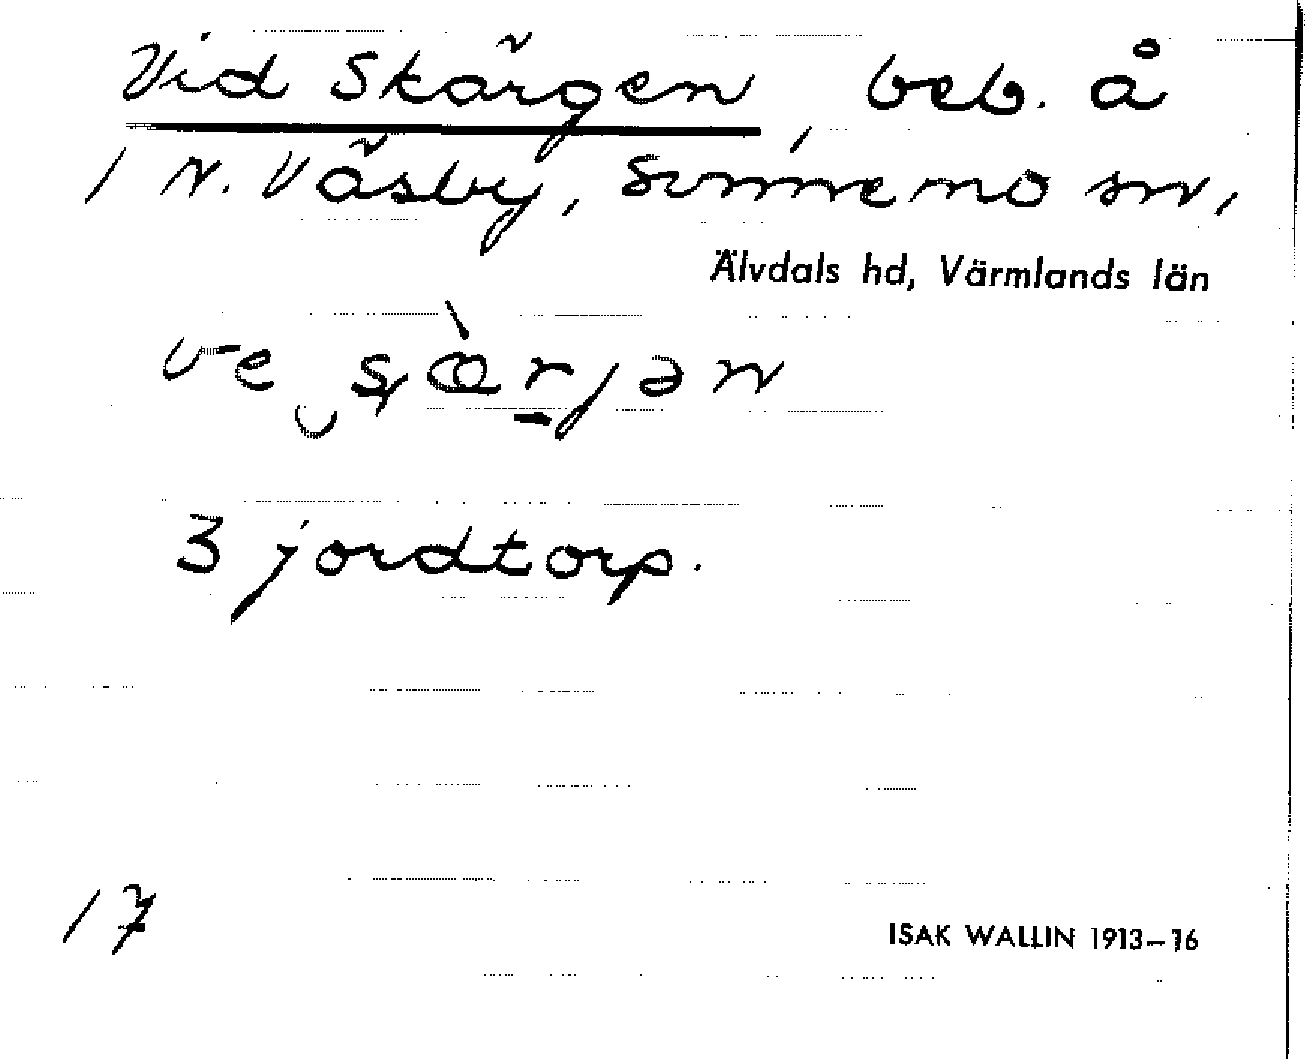 Vid Skärgen, beb. å
1 N. Väsby, Sunnemo sn,
Älvdals hd, Värmlands län
3 jordtorp.
17
ISAK WALLIN 1913–16